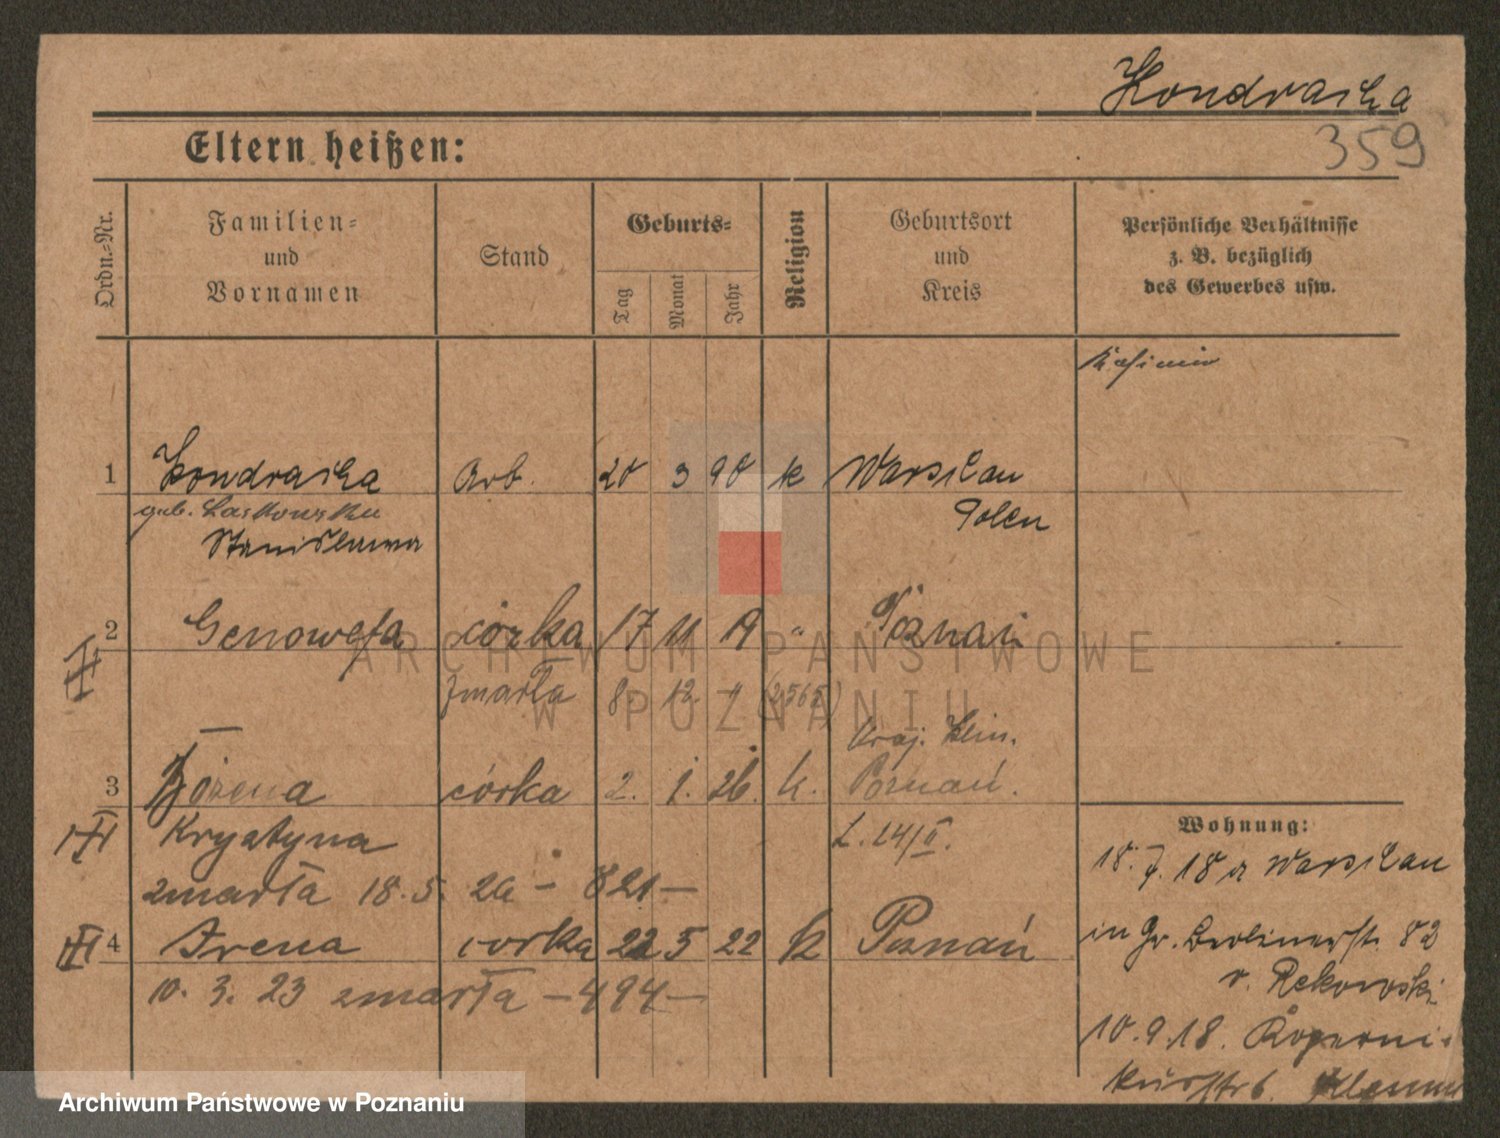 Kondraska
359
Eltern heißen:
Ordn.-Nr.
Familien- und Vornamen
Stand
Geburts-
Tag
Monat
Jahr
Religion
Geburtsort und Kreis
Persönliche Verhältnisse z. B. bezüglich des Gewerbes usw.
Kasimir
1 Kondraska Arb. 20 3 90 k Warschau
geb. Laskowska Polen
Stanislawa
2 Genowefa córka 17 11 19 " Poznań
zmarła 8. 12. " (2565)
Kraj. Klin.
3 Bożena córka 2. 1. 26. k. Poznań.
Krystyna L. 14/II.
zmarła 18. 5. 26 - 821 -
III 4 Irena corka 22 5 22 k Poznań
10. 3. 23 zmarła - 494 -
Wohnung:
18. 7. 18 a Warschau
in Gr. Berlinerstr. 82
v. Rekowski
10. 9. 18. Koperni-
kusstr 6.
ARCHIWUM PAŃSTWOWE
W POZNANIU
Archiwum Państwowe w Poznaniu